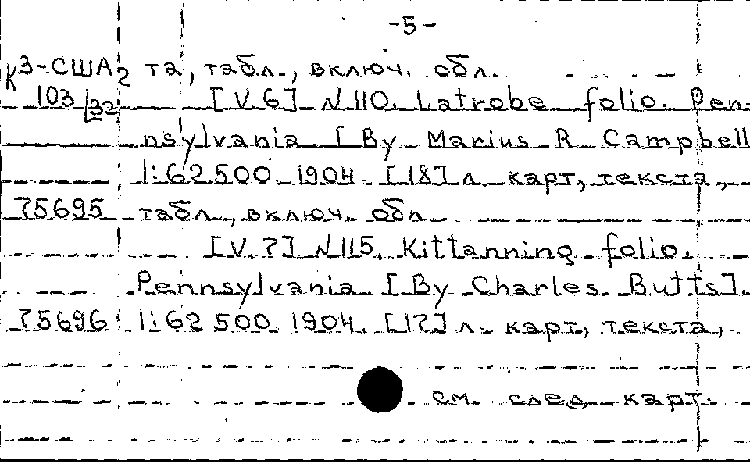 -5-
К3-США2 та, табл., включ. обл.
103/32 [V.6] №110. Latrobe folio. Pen-
nsylvania [By Marius R Campbell
1:62 500 1904 [18] л. карт, текста,
75695 табл., включ. обл
[V.7] №115. Kittanning folio.
Pennsylvania [By Charles Butts].
75696 1:62 500 1904. [17] л. карт, текста,
см. след карт.